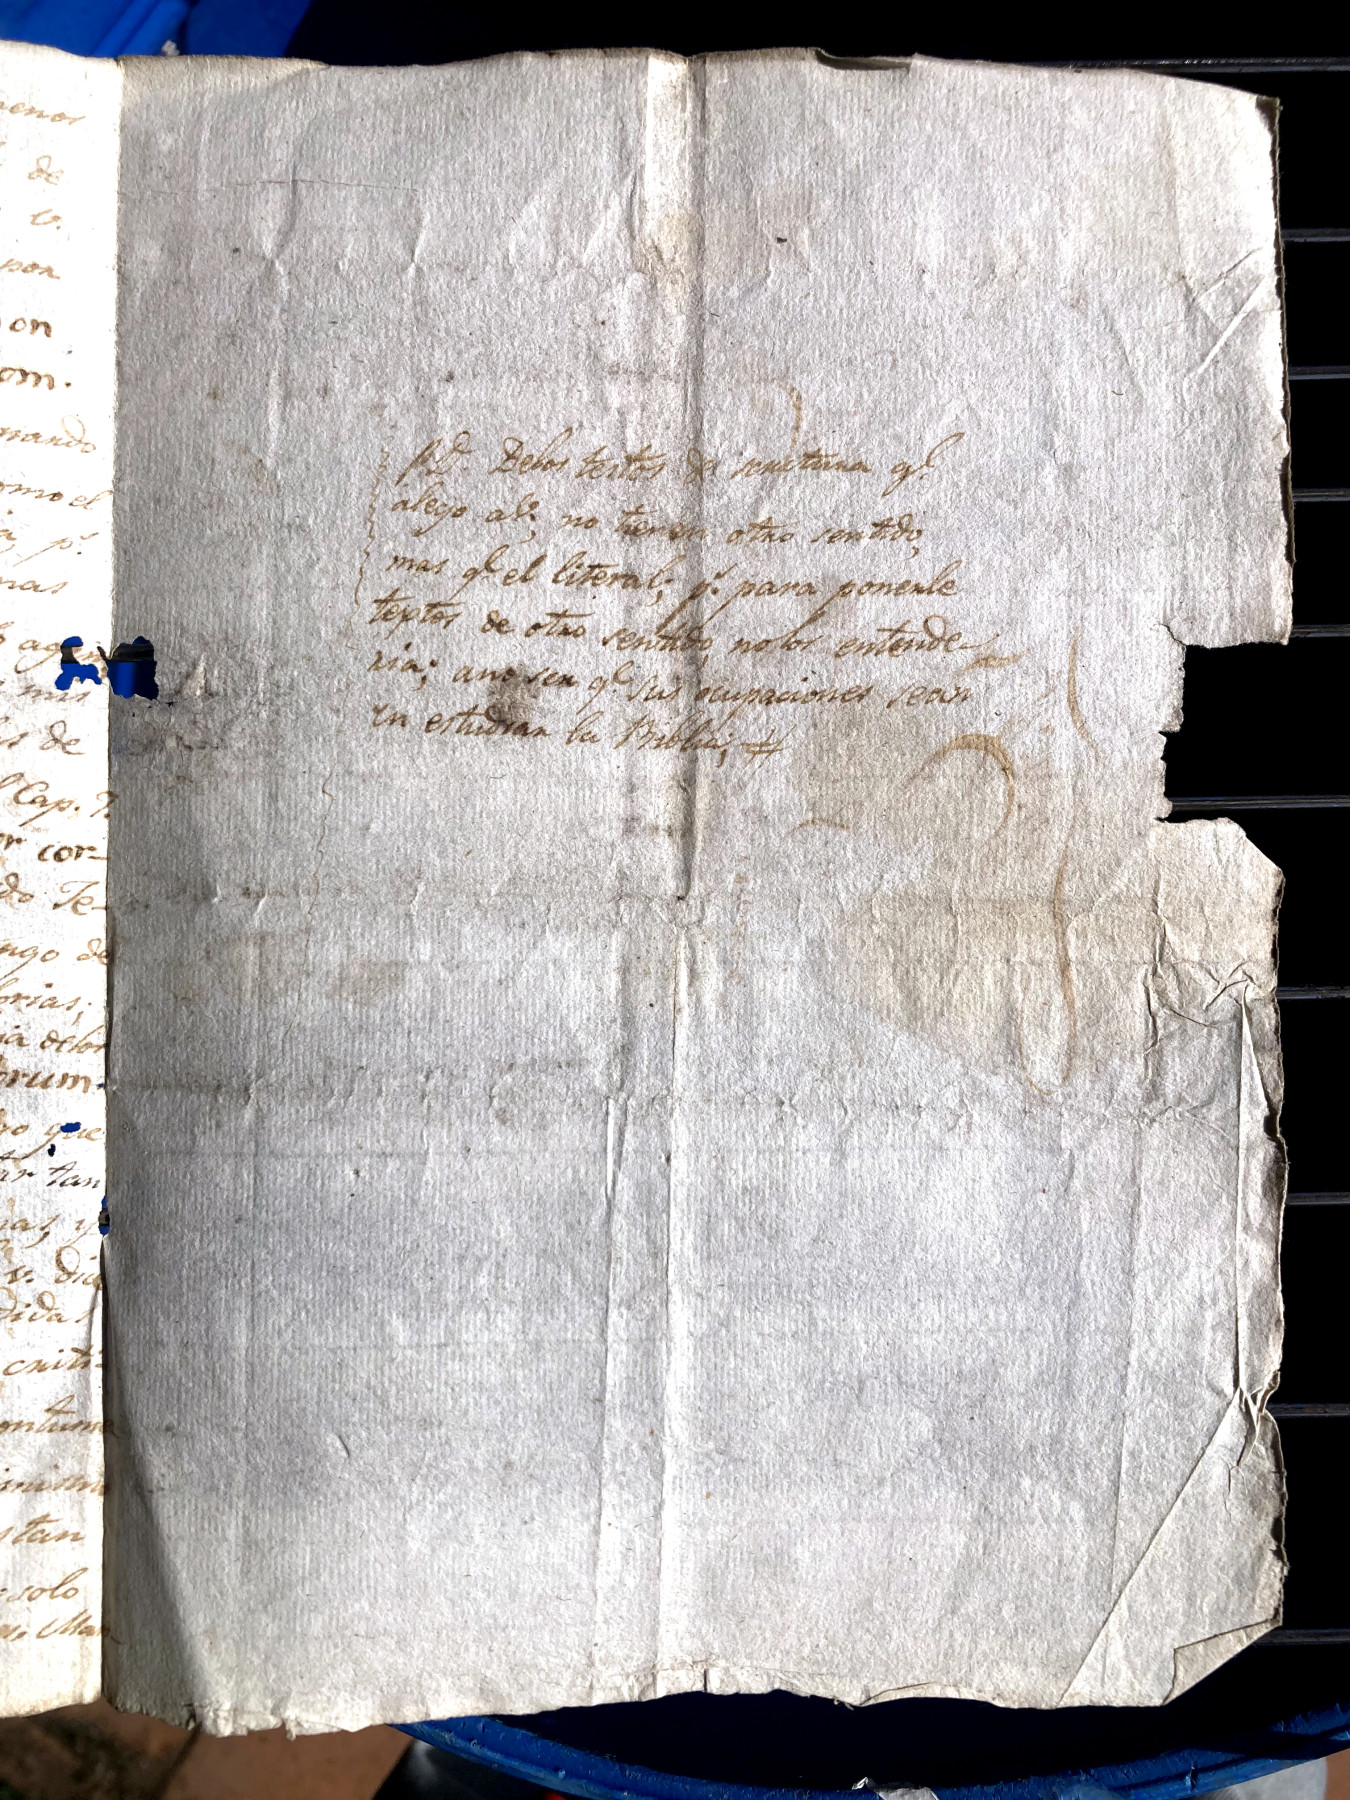 menos
de
v.
por
on
om.
mando
omo el
pr.
mas
mis
os de
l Cap. 7.
or cor-
do Te-
ngo de
orias;
ia delos
orum.
ro que
ar tan
ias, y
v. dice
didas
criti-
ontume
issimo
stan
solo
Man
P.D. Delos testos de scritura qe.
alego a Ve, no tienen otro sentido,
mas qe. el literal; pr. para ponerle
textos de otro sentido, nolos entende-
ria; ano ser qe. sus ocupaciones sean
en estudiar la Biblia;